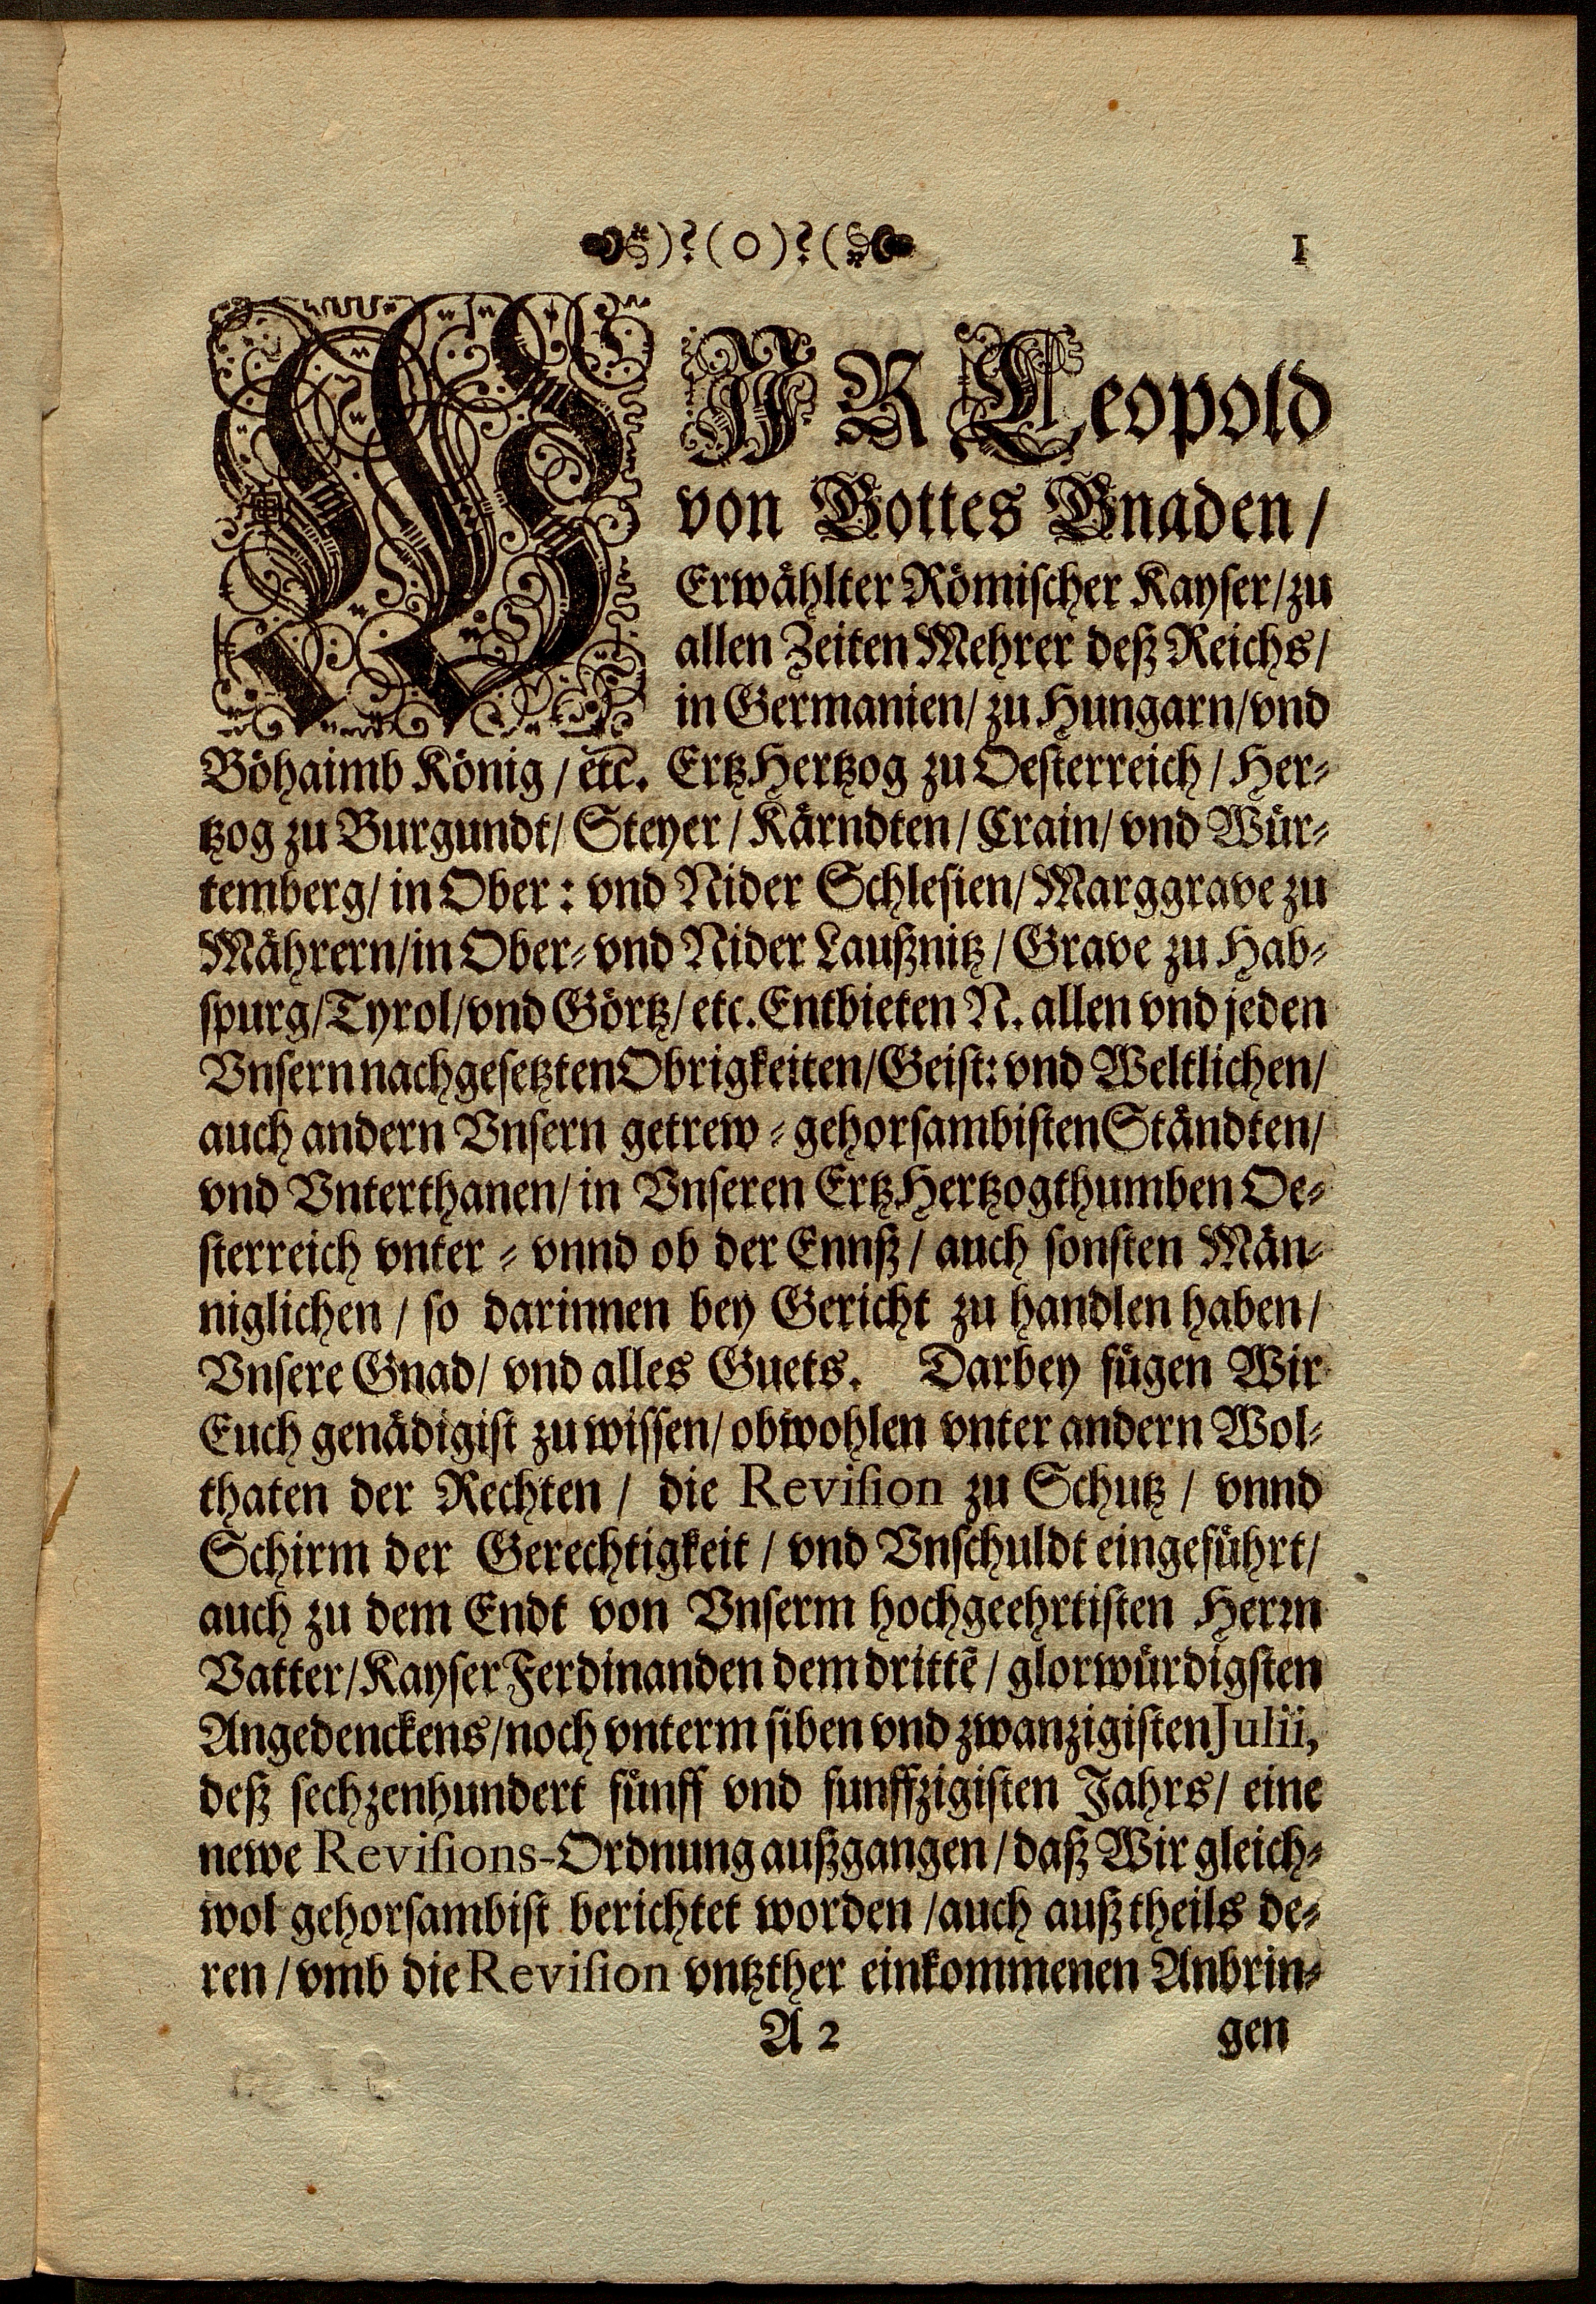 )?(O)?( 1
WJR Leopold
von Gottes Gnaden/
Erwählter Römischer Kayser/zu
allen Zeiten Mehrer deß Reichs/
in Germanien/ zu Hungarn/vnd
Böhaimb König / etc. ErtzHertzog zu Oesterreich / Her-
tzog zu Burgundt/ Steyer / Kärndten/ Crain/ vnd Wür-
temberg/ in Ober: vnd Nider Schlesien/ Marggrave zu
Mährern/in Ober- vnd Nider Laußnitz / Grave zu Hab-
spurg/Tyrol/vnd Görtz/ etc. Entbieten N. allen vnd jeden
Vnsern nachgesetzten Obrigkeiten/Geist: vnd Weltlichen/
auch andern Vnsern getrew - gehorsambisten Ständten/
vnd Vnterthanen/ in Vnseren ErtzHertzogthumben Oe-
sterreich vnter - vnnd ob der Ennß / auch sonsten Män-
niglichen / so darinnen bey Gericht zu handlen haben/
Vnsere Gnad/ vnd alles Guets. Darbey fügen Wir
Euch genädigist zu wissen/ obwohlen vnter andern Wol-
thaten der Rechten / die Revision zu Schutz / vnnd
Schirm der Gerechtigkeit / vnd Vnschuldt eingeführt/
auch zu dem Endt von Vnserm hochgeehrtisten Herrn
Vatter/Kayser Ferdinanden dem drittē / glorwürdigsten
Angedenckens/noch vnterm siben vnd zwanzigisten Julii,
deß sechzenhundert fünff vnd funffzigisten Jahrs/ eine
newe Revisions-Ordnung außgangen / daß Wir gleich-
wol gehorsambist berichtet worden /auch auß theils de-
ren / vmb die Revision vntzther einkommenen Anbrin-
A 2 gen